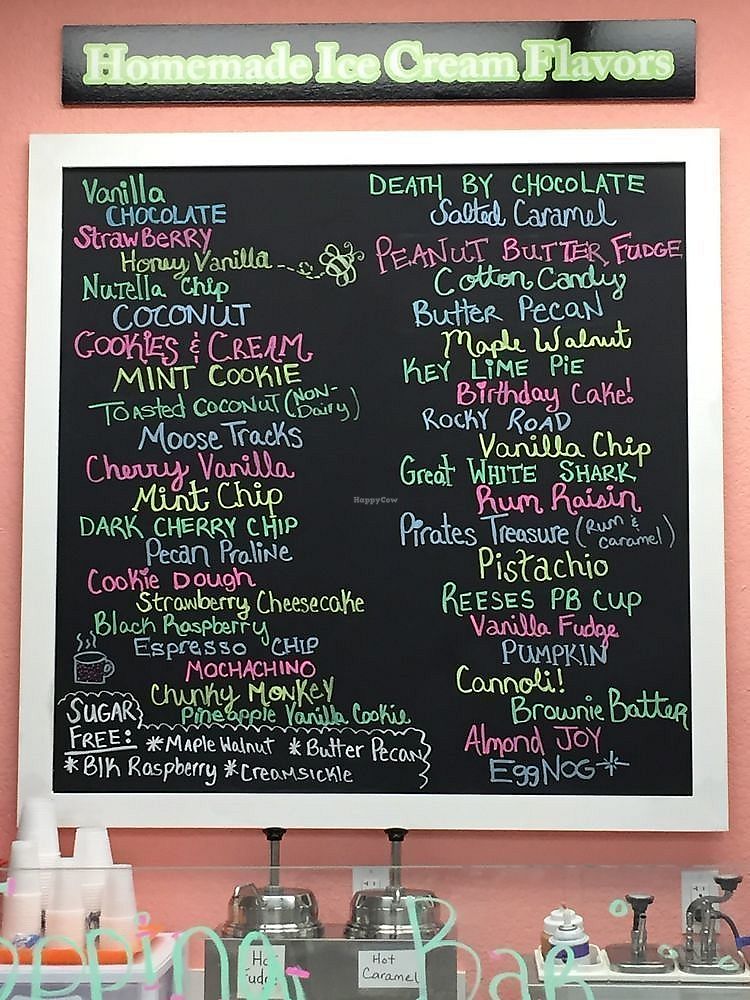 Homemade Ice Cream Flavors
Vanilla
CHOCOLATE
StrawBerry
Honey Vanilla
Nutella Chip
COCONUT
COOKIES & CREAM
MINT COOKIE
TOASTED COCONUT (NON-
Dairy)
Moose Tracks
Cherry Vanilla
Mint Chip
DARK CHERRY CHIP
Pecan Praline
Cookie Dough
Strawberry Cheesecake
Black Raspberry
Espresso CHIP
MOCHACHINO
Chunky Monkey
Pineapple Vanilla Cookie
SUGAR
FREE: *Maple Walnut *Butter Pecan
*Blk Raspberry *Creamsickle
DEATH BY CHOCOLATE
Salted Caramel
PEANUT BUTTER FUDGE
Cotton Candy
Butter PECAN
Maple Walnut
KEY LIME PIE
Birthday Cake!
ROCKY ROAD
Vanilla Chip
Great WHITE SHARK
Rum Raisin
Pirates Treasure (Rum &
caramel)
Pistachio
REESES PB CUP
Vanilla Fudge
PUMPKIN
Cannoli!
Brownie Batter
Almond JOY
EggNOG*
HappyCow
Hot
Fudge
Hot
Caramel
opping Bar